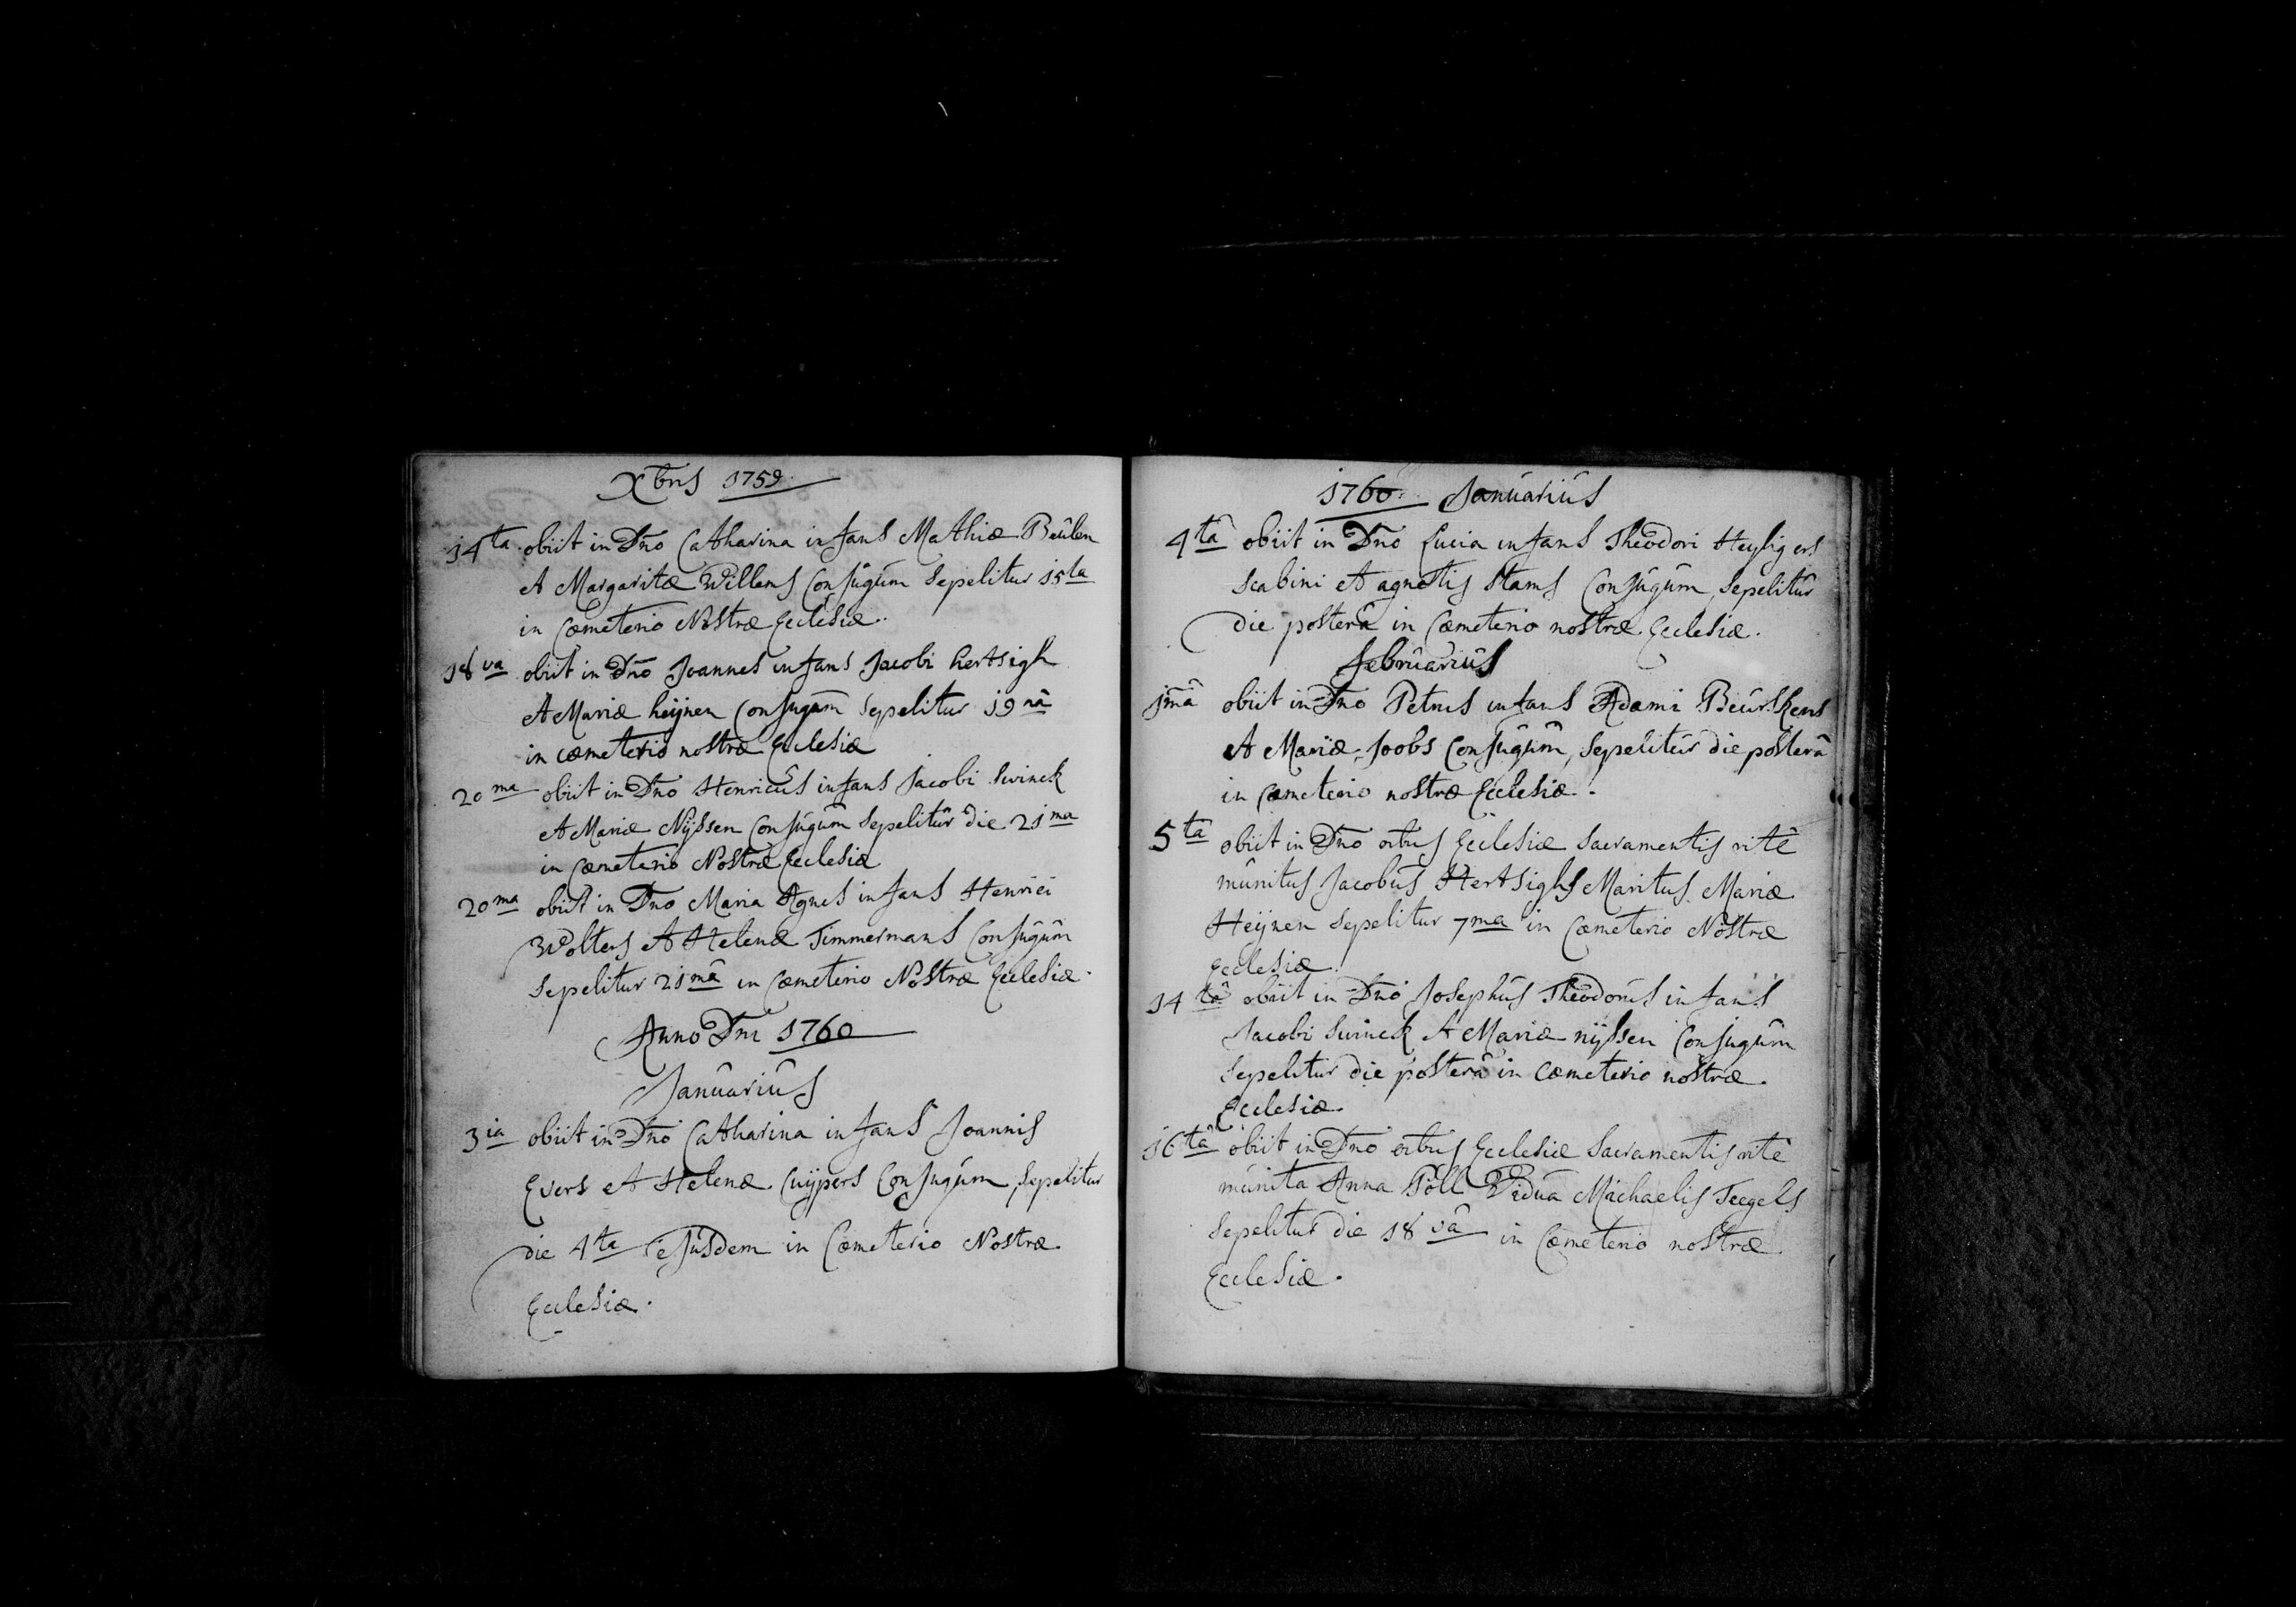 Xbris 1759.
14ta obiit in Dno Catharina infans Mathiæ Beûlen
et Margaritæ Willems Conjugûm sepelitur 15ta
in Cœmeterio Nostræ Ecclesiæ.
18va obiit in Dno Joannes infans Jacobi hertsigh
et Mariæ heijnen Conjugum sepelitur 19nâ
in cœmeterio nostræ Ecclesiæ
20ma obiit in Dno Henricûs infans Jacobi Swinck
et Mariæ Nijssen Conjugûm Sepelitûr die 21ma
in Cœmeterio Nostræ Ecclesiæ
20ma obiit in Dno Maria Agnes infans Henrici
Wolters et Helenæ Timmermans Conjugûm
Sepelitur 21mâ in Cœmeterio Nostræ Ecclesiæ.
Anno Dni 1760
Janûariûs
3ia obiit in Dno Catharina infans Joannis
Evers et Helenæ Cuijpers Conjugûm, Sepelitur
die 4ta ejûsdem in Cœmeterio Nostræ
Ecclesiæ.
1760. Janûariûs
4tâ obiit in Dno Lucia infans Theodori Heyligers
Scabini et agnetis Stams Conjugûm, Sepelitûr
die posterâ in Cœmeterio nostræ Ecclesiæ.
Febrûariûs
1mâ obiit in Dno Petrus infans Adami Beûrskens
et Mariæ Joobs Conjûgûm, Sepelitûr die posterâ
in Cœmeterio nostræ Ecclesiæ.
5tâ obiit in Dno oibus Ecclesiæ Sacramentis ritê
mûnitus Jacobûs Hertsighs Maritus Mariæ
Heijnen Sepelitur 7ma in Cœmeterio Nostræ
Ecclesiæ.
14tâ obiit in Dno Josephûs Theodorûs infans
Jacobi Swinck et Mariæ nijssen Conjugûm
Sepelitur die posterâ in Cœmeterio nostræ.
Ecclesiæ.
16tâ obiit in Dno oibus Ecclesiæ Sacramentis ritê
mûnita Anna Töll Vidûa Michaelis Teegels
Sepelitur die 18vâ in Cœmeterio nostræ
Ecclesiæ.